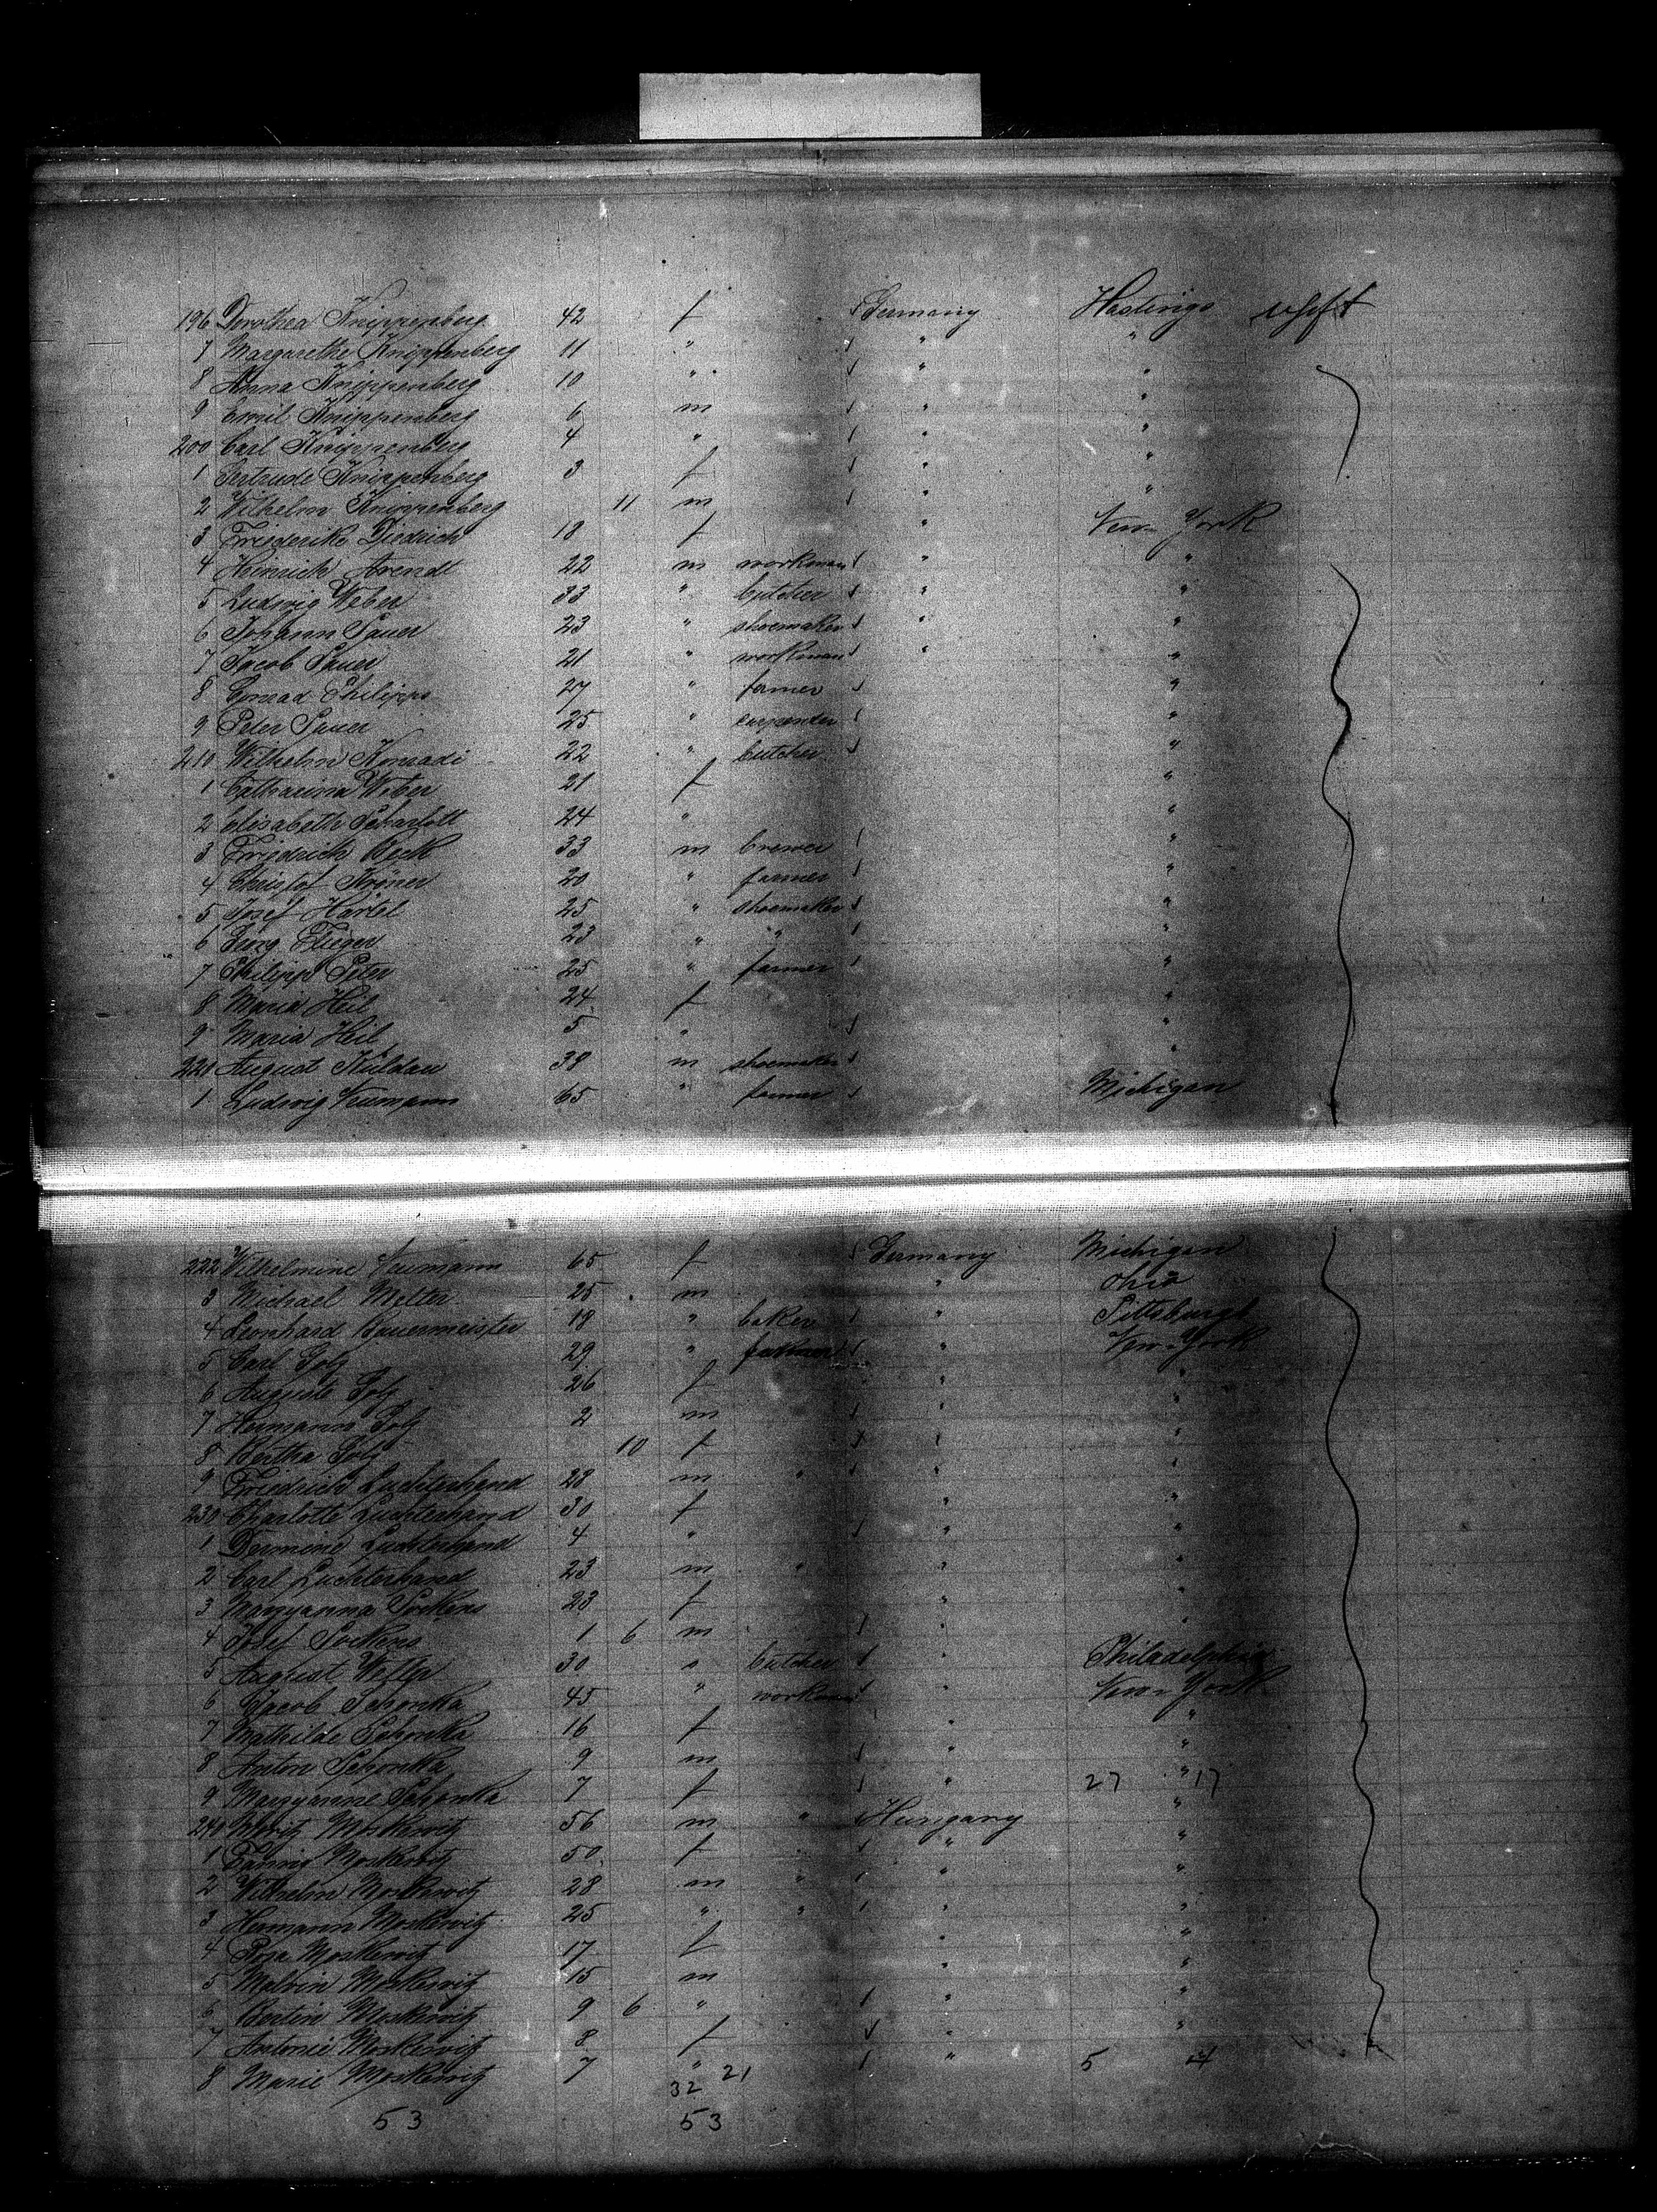 196 Dorothea Knippenberg 42 f Germany Hastings
7 Margarethe Knippenberg 11 " " "
8 Anna Knippenberg 10 " " "
9 Emil Knippenberg 6 m " "
200 Carl Knippenberg 4 " " "
1 Gertrude Knippenberg 3 f " "
2 Wilhelm Knippenberg 11 m " "
3 Friederike Diedrich 18 f " New-York
4 Heinrich Arendt 22 m workman " "
5 Ludwig Weber 33 " butcher " "
6 Johann Sauer 23 " shoemaker " "
7 Jacob Sauer 21 " workman " "
8 Conrad Philipps 27 " farmer "
9 Peter Sauer 25 " carpender "
210 Wilhelm Konradi 22 " butcher "
1 Catharina Weber 21 f "
2 Elisabeth Scharlott 24 " "
3 Friedrich Beck 33 m brewer "
4 Christof Kröner 20 " farmer "
5 Josef Härtel 25 " shoemaker "
6 Georg 23 " " "
7 Philipp Peter 25 " farmer "
8 Maria Heil 24 f "
9 Maria Heil 5 " "
220 August Kuldau 38 m shoemaker "
1 Ludwig Neumann 65 " farmer Michigan
222 Wilhelmine Neumann 65 f Germany Michigan
3 Michael Melter 25 m " Ohio
4 Leonhard Bauermeister 18 " baker " Pittsburgh
5 Carl Golz 29 " " New-York
6 Auguste Golz 26 f " "
7 Hermann Golz 2 m " "
8 Bertha Golz 10 f " "
9 Friedrich Luchterhand 28 m " " "
230 Charlotte Luchterhand 30 f " "
1 Luchterhand 4 " " "
2 Carl Luchterhand 23 m " " "
3 Maryanna 23 f " "
4 Josef 1 6 m " "
5 August 30 " butcher " Philadelphia
6 Jacob Schonka 45 " workman " New-York
7 Mathilde Schonka 16 f " "
8 Anton Schonka 9 m " "
9 Maryanne Schonka 7 f " 27 " 17
240 Moritz Moskewitz 56 m " Hungary "
1 Fanny Moskewitz 50 f " "
2 Wilhelm Moskewitz 28 m " " "
3 Hermann Moskewitz 25 " " " "
4 Rosa Moskewitz 17 f " "
5 Malvin Moskewitz 15 m " "
6 Bertin Moskewitz 9 6 " " "
7 Antonie Moskewitz 8 f " "
8 Marie Moskewitz 7 " " 5 4
32 21
53 53